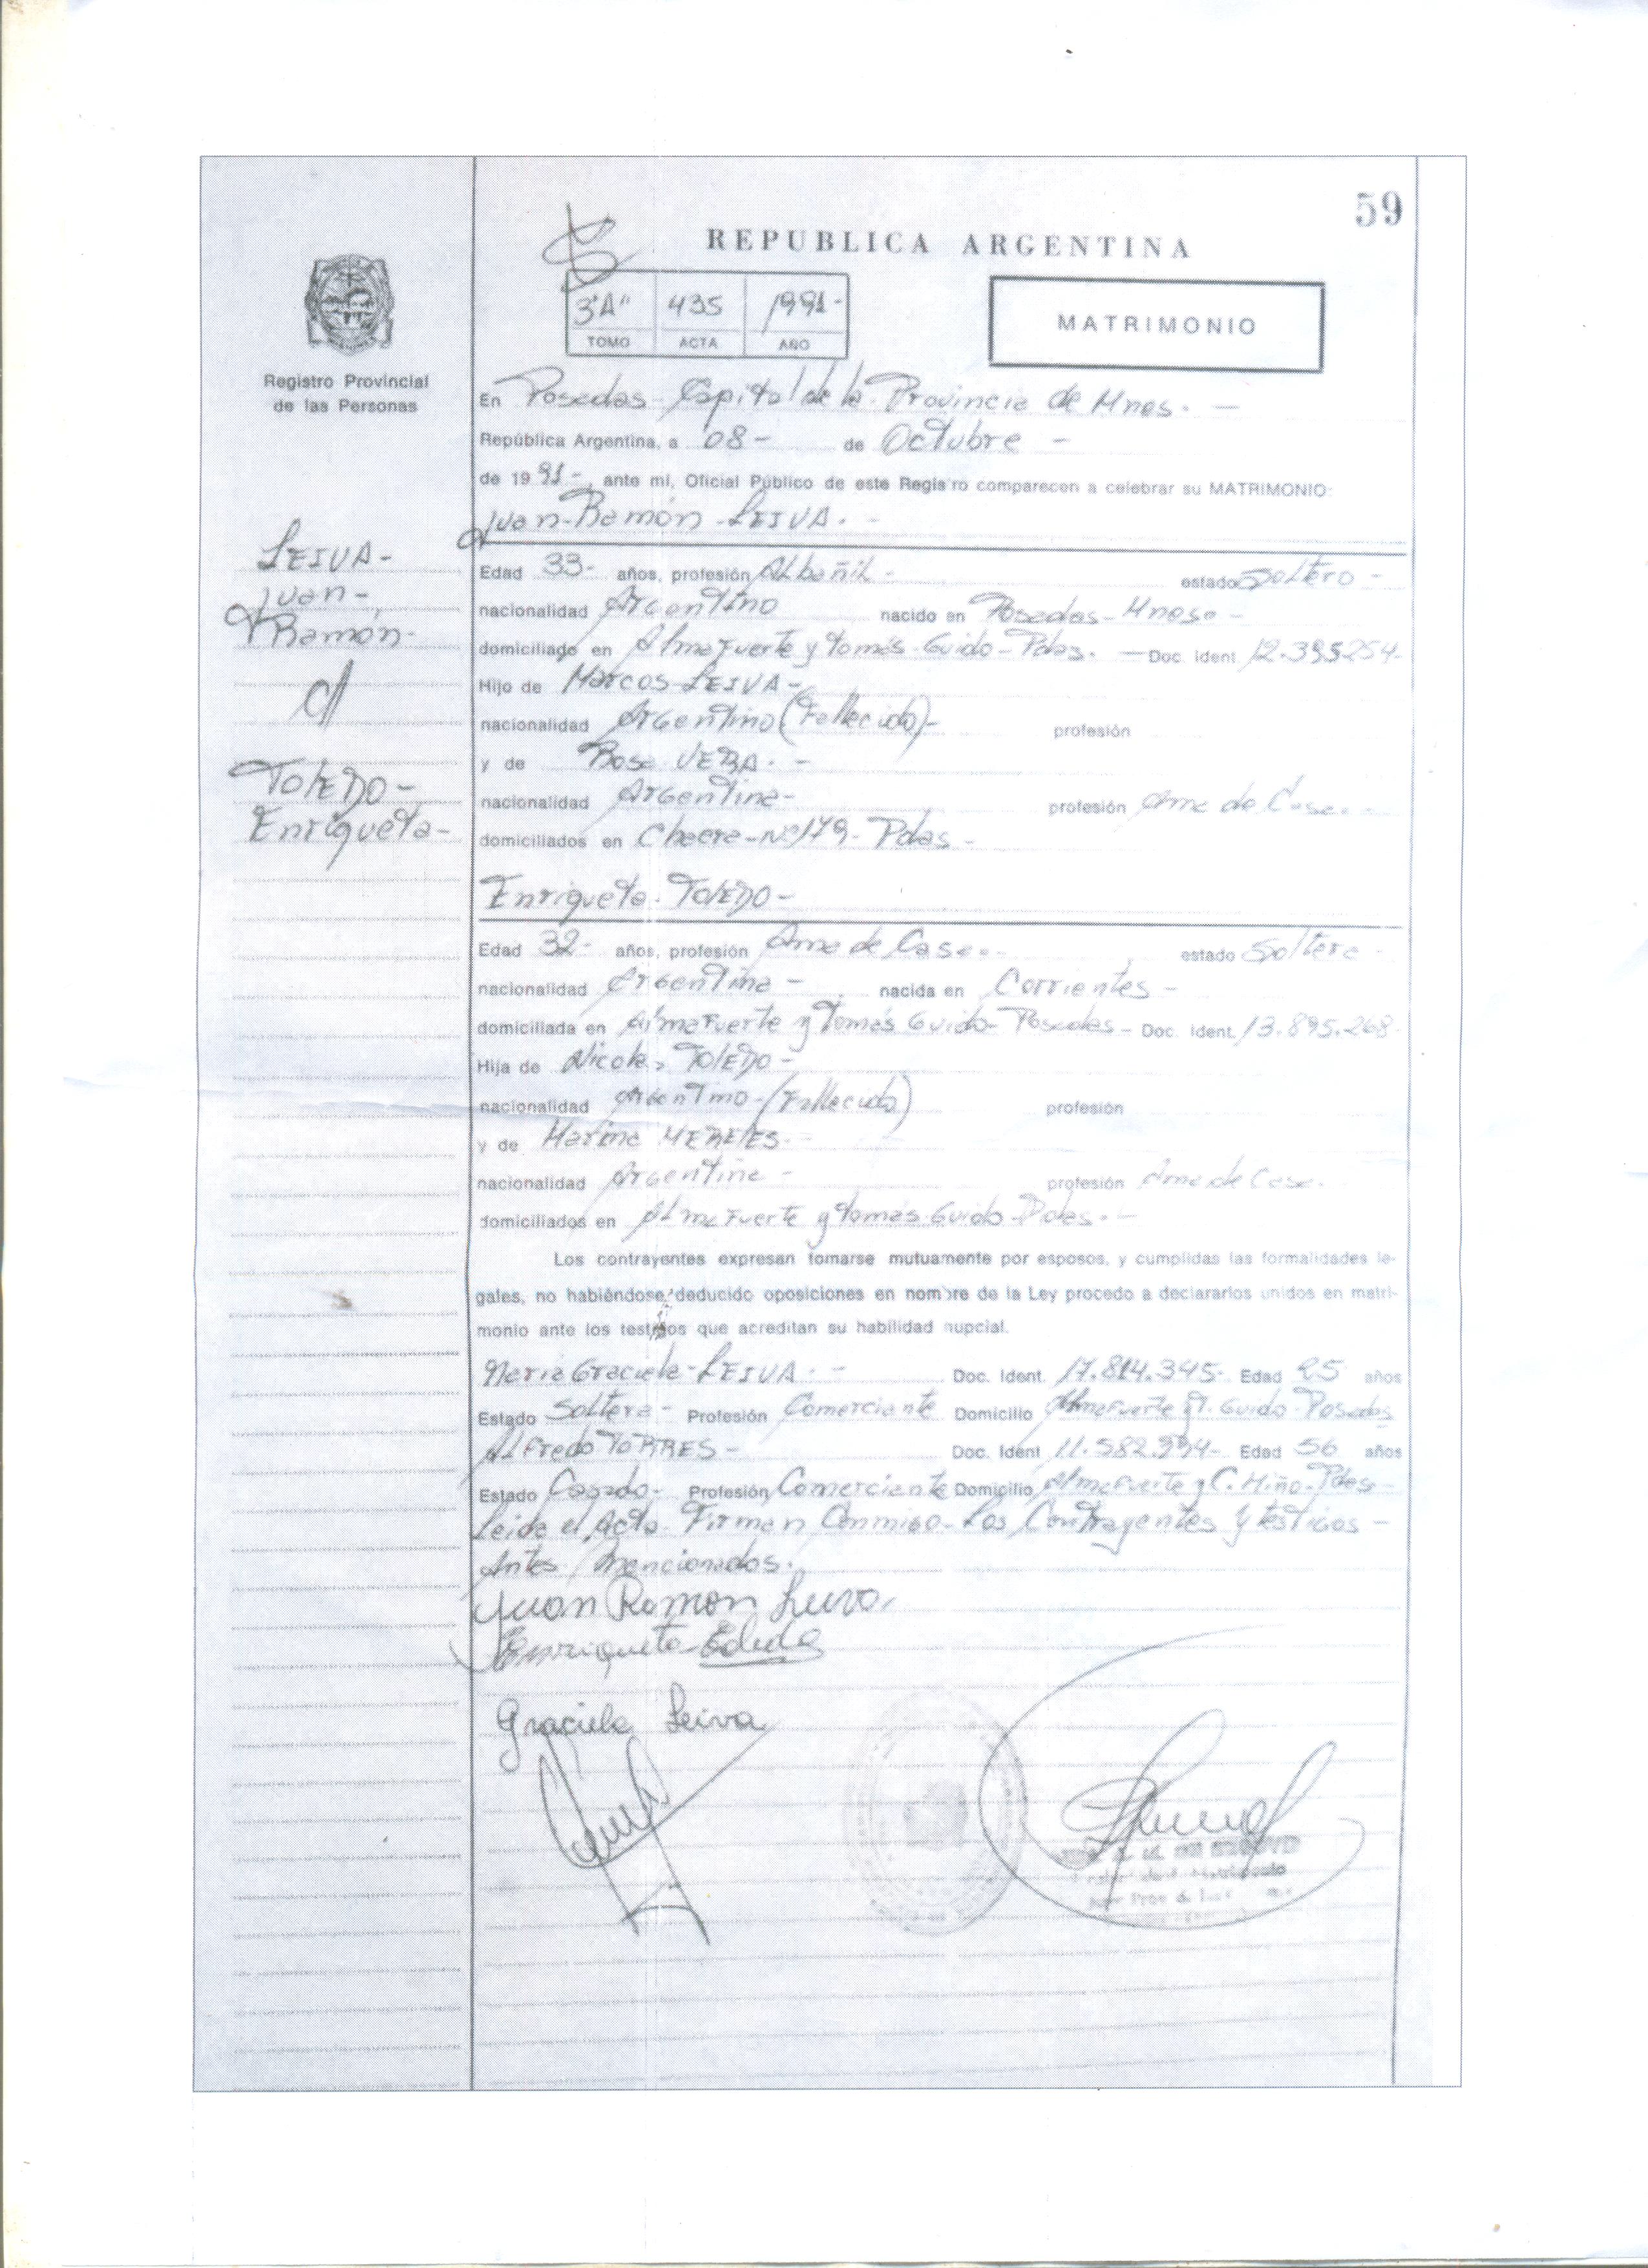 59
REPUBLICA ARGENTINA
3"A" 435 1991-
TOMO ACTA AÑO
MATRIMONIO
Registro Provincial
de las Personas
LEIVA-
Juan-
Ramón-
c/
TOLEDO-
Enriqueta-
En Posadas- Capital de la Provincia de Mnes. -
República Argentina, a 08- de Octubre -
de 1991-, ante mí, Oficial Público de este Registro comparecen a celebrar su MATRIMONIO:
Juan-Ramón-LEIVA. -
Edad 33- años, profesión Albañil- estado Soltero -
nacionalidad Argentino nacido en Posadas-Mnes. -
domiciliado en Almafuerte y Tomás-Guido-Pdas. - Doc. Ident 12.395254-
Hijo de Marcos-LEIVA-
nacionalidad Argentino (Fallecido)- profesión
y de Rosa VERA. -
nacionalidad Argentina- profesión Ama de Casa. -
domiciliados en Chacra-Nº179- Pdas -
Enriqueta-TOLEDO-
Edad 32- años, profesión Ama de Casa.- estado Soltera -
nacionalidad Argentina - nacida en Corrientes -
domiciliada en Almafuerte y Tomás Guido- Posadas- Doc. Ident. 13.895.268-
Hija de Nicolas TOLEDO-
nacionalidad Argentino-(Fallecido) profesión
y de Marina MERELES.-
nacionalidad Argentina - profesión Ama de Casa.
domiciliados en Almafuerte y Tomás-Guido-Pdas. -
Los contrayentes expresan tomarse mutuamente por esposos, y cumplidas las formalidades le-
gales, no habiéndose deducido oposiciones en nombre de la Ley procedo a declararlos unidos en matri-
monio ante los testigos que acreditan su habilidad nupcial.
Maria Graciela-LEIVA. - Doc. Ident. 17.814.345- Edad 25 años
Estado Soltera- Profesión Comerciante Domicilio Almafuerte y T. Guido-Posadas
Alfredo TORRES- Doc. Ident 11.582.994- Edad 56 años
Estado Casado- Profesión Comerciante Domicilio Almafuerte y C. Miño-Pdas-
Leida el Acta- Firman Conmigo-Los Contrayentes y testigos -
Antes Mencionados.
Juan Ramon Leiva.
Enriqueta
Graciela Leiva